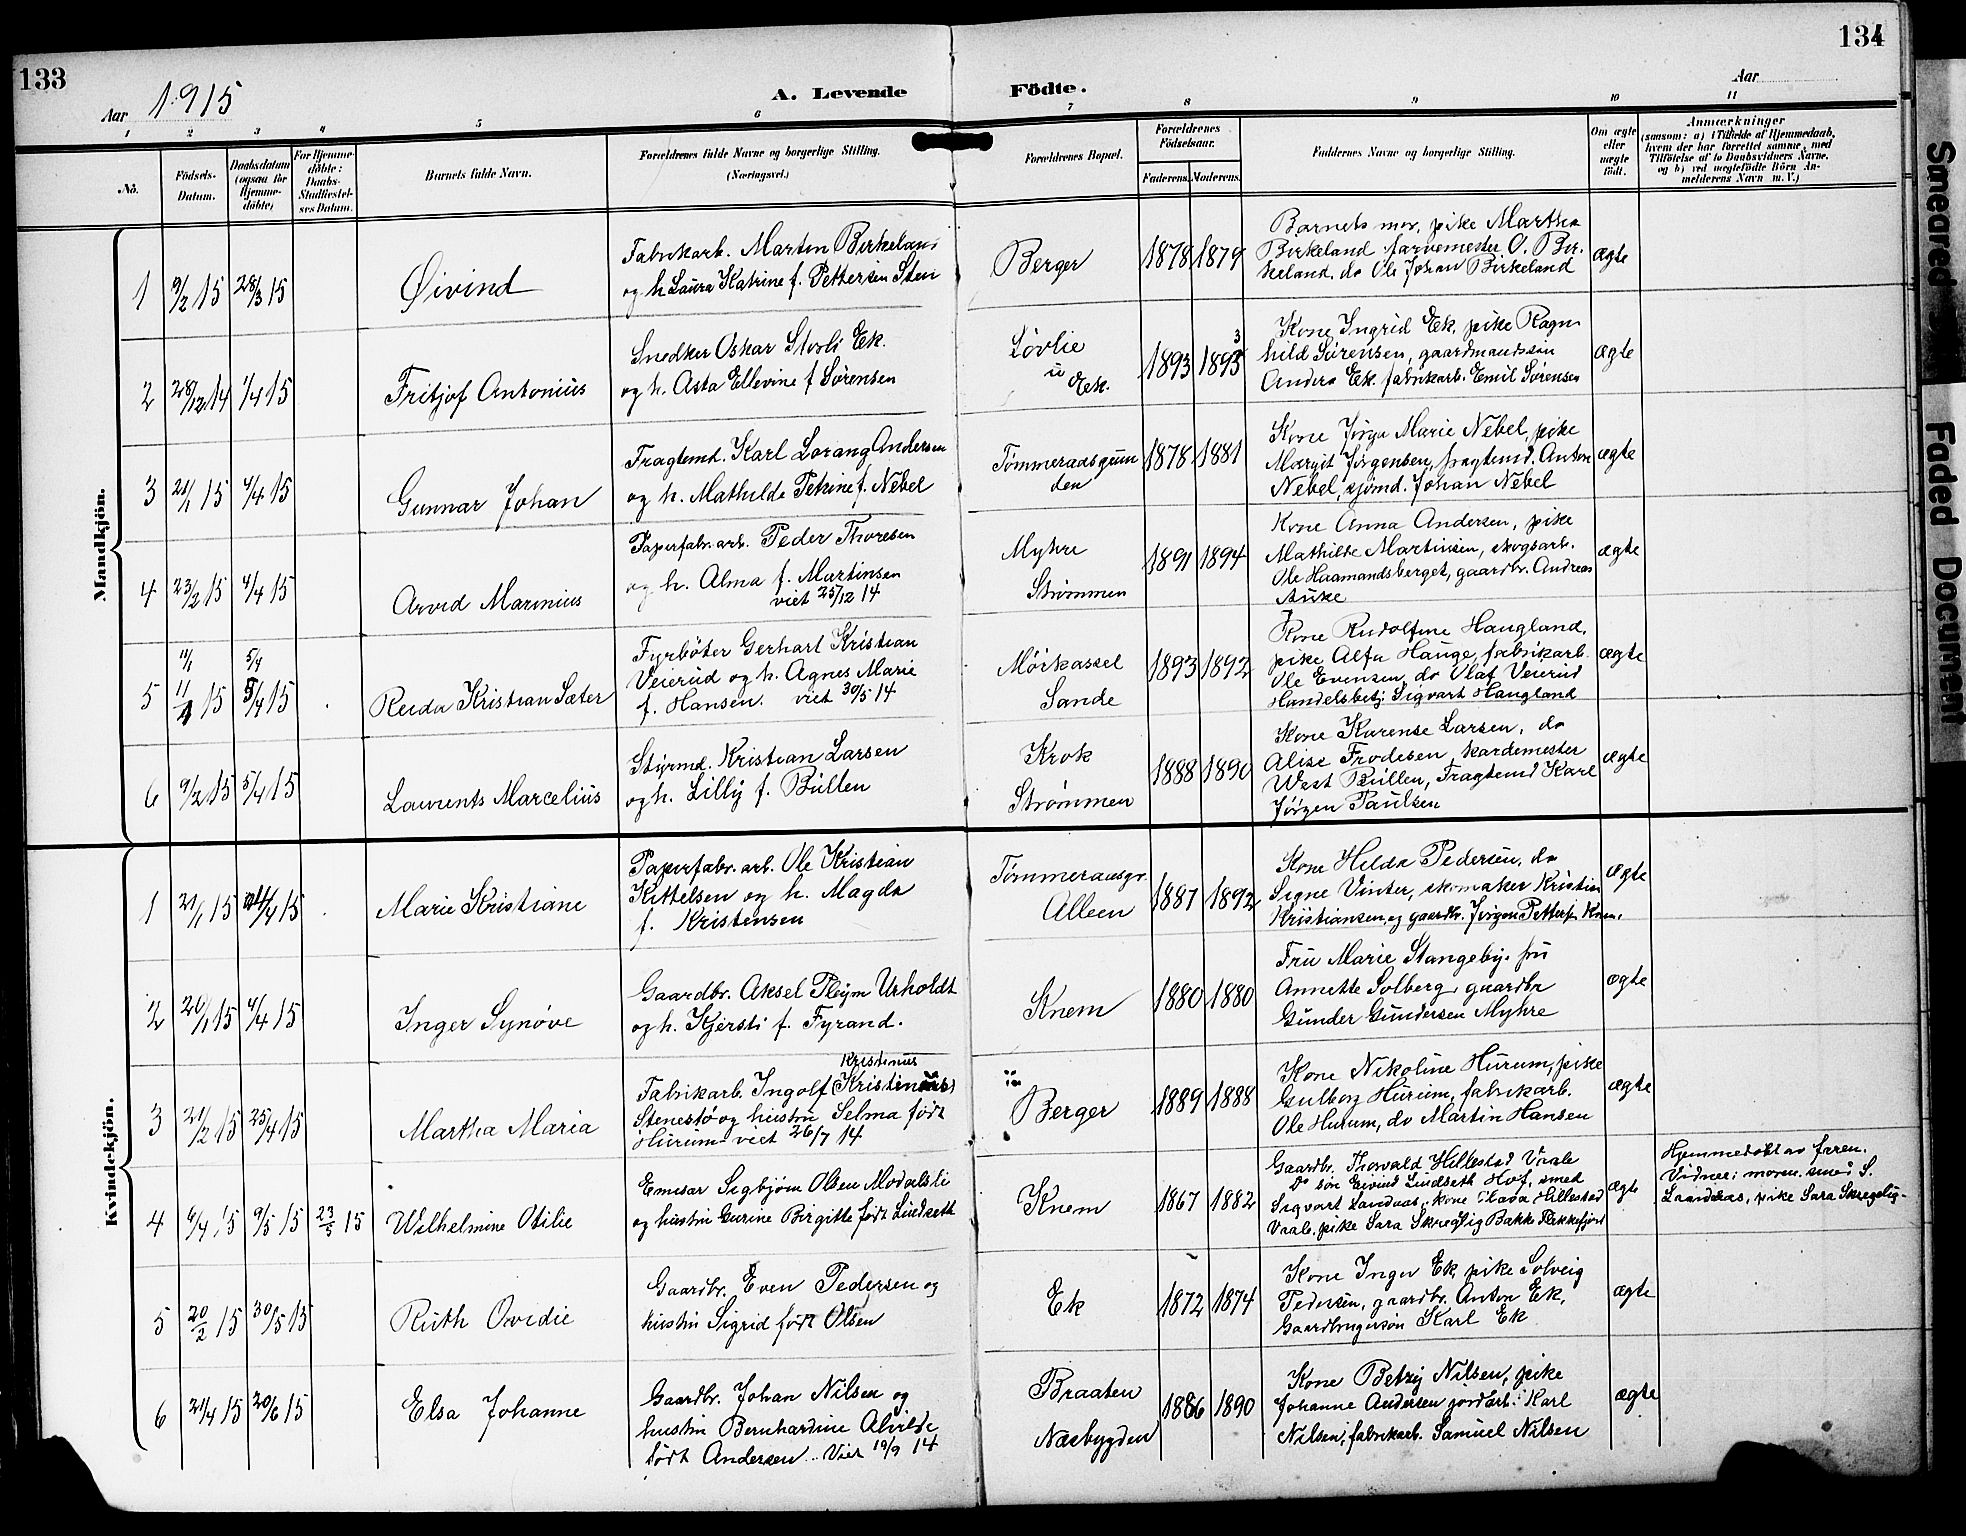 133
134
Aar 1915
A. Levende Födte.
Aar
1 2 3 4 5 6 7 8 9 10 11
No.
Födsels-Datum.
Daabsdatum (ogsaa for Hjemme-döbte)
For Hjemme-döbte: Daabs-Stadfæstel-ses Datum.
Barnets fulde Navn.
Forældrenes fulde Navne og borgerlige Stilling.
(Næringsvei.)
Forældrenes Bopæl.
Forældrenes Födselsaar.
Faderens. Moderens.
Faddernes Navne og borgerlige Stilling.
Om ægte eller uægte födt.
Anmærkninger
(saasom: a) i Tilfælde af Hjemmedaab,
hvem der har forrettet samme, med
Tilföielse af to Daabsvidners Navne,
og b) ved uægtefödte Börn An-
melderens Navn m. V.)
Mandkjön.
1 9/2 15 28/3 15 Øivind
Fabrikarb. Martin Birkeland
og h. Laura Katrine f. Pettersen Sten
Berger 1878 1879
Barnets mor, pike Martha
Birkeland farvemester O. Bir-
keland, do Ole Johan Birkeland
ægte
2 28/12 14 1/4 15 Fritjof Antonius
Snedker Oskar Storli Ek.
og h. Asta Ellevine f Sørensen
Løvlie
u Ek.
1893 1893 3
Kone Ingrid Ek, pike Ragn
hild Sørensen, gaardmandssøn
Anders Ek. fabrikarb. Emil Sørensen
ægte
3 21/1 15 4/4 15 Gunnar Johan
Fragtemd. Karl Lorang Andersen
og h. Mathilde Petrine f. Nebel
Tømmeraasgrun
den
1878 1881
Kone Jørga Marie Nebel, pike
Margit Jørgensen, fragtemd. Anton
Nebel, sjømd. Johan Nebel
ægte
4 23/2 15 4/4 15 Arvid Marinius
Papirfabr. arb. Peder Thoresen
og h. Alma f. Martinsen
viet 25/12 14
Myhre
Strømmen
1891 1894
Kone Anna Andersen, pike
Mathilde Martinsen, skogsarb.
Ole Haamandsberget, gaardbr. Andreas
Auke
ægte
11/1 5/4
5 11/1 15 5/4 15 Reidar Kristian Sæter
Fyrbøter Gerhart Kristian
Veierud og h. Agnes Marie
f. Hansen. viet 30/5 14
Mørkassel
Sande
1893 1892
Kone Rudolfine Haugland,
pike Alfa Hauge, fabrikarb.
Ole Evensen, do Olaf Veierud
Handelsbetj. Sigvart Haugland
ægte
6 9/2 15 5/4 15 Laurents Marcelius
Styrmd. Kristian Larsen
og h. Lilly f. Büllen
Krok
Strømmen
1888 1890
Kone Karense Larsen, do
Alise Frodesen, kardemester
West Büllen, Fragtemd Karl
Jørgen Paulsen
ægte
Kvindekjön.
1 21/1 15 4/4 15 Marie Kristiane
Papirfabr. arb. Ole Kristian
Kittelsen og h. Magda
f. Kristensen
Tømmeraasgr.
Alleen
1887 1892
Kone Hilda Pedersen, do
Signe Vinter, skomaker Kristian
Kristiansen og gaardbr. Jørgen Petters. Knem.
ægte
2 26/1 15 4/4 15 Inger Synøve
Gaardbr. Aksel Pleym Urholdt
og h. Kjersti f. Fyrand.
Knem 1880 1880
Fru Marie Stangeby, fru
Annette Solberg, gaardbr
Gunder Gundersen Myhre
ægte
Kristinus
3 21/2 15 25/4 15 Martha Maria
Fabrikarb. Ingolf (Kristinus)
Stenestø og hustru Selma født
Hurum viet 26/7 14
Berger 1889 1888
Kone Nikoline Hurum, pike
Gulborg Hurum, fabrikarb.
Ole Hurum, do Martin Hansen
ægte
4 6/4 15 9/5 15 23/5 15 Wilhelmine Otilie
Emisær Sigbjørn Olsen Modalsli
og hustru Gurine Birgitte født Lindseth
Knem 1867 1882
Gaardbr. Thorvald Hillestad Vaale
Do søn Eivind Lindseth Hof, smed
Sigvart Landaas, kone Hillestad
Vaale, pike Sara Skregelig Bakke Flekkefjord
ægte
Hjemmedøbt av faren.
Vidner: moren, smed S.
Landaas, pike Sara Skregelig.
5 20/2 15 30/5 15 Ruth Ovidie
Gaardbr. Even Pedersen og
hustru Sigrid født Olsen
Ek 1872 1874
Kone Inger Ek, pike Solveig
Pedersen, gaardbr. Anton Ek,
Gaardbrugersøn Karl Ek
ægte
6 21/4 15 20/6 15 Elsa Johanne
Gaardbr. Johan Nilsen og
hustru Bernhardine Alvilde
født Andersen. Viet 19/9 14
Braaten
Næsbygden
1886 1890
Kone Betzy Nilsen, pike
Johanne Andersen jordarb. Karl
Nilsen, fabrikarb. Samuel Nilsen
ægte
Smeared
Faded Document